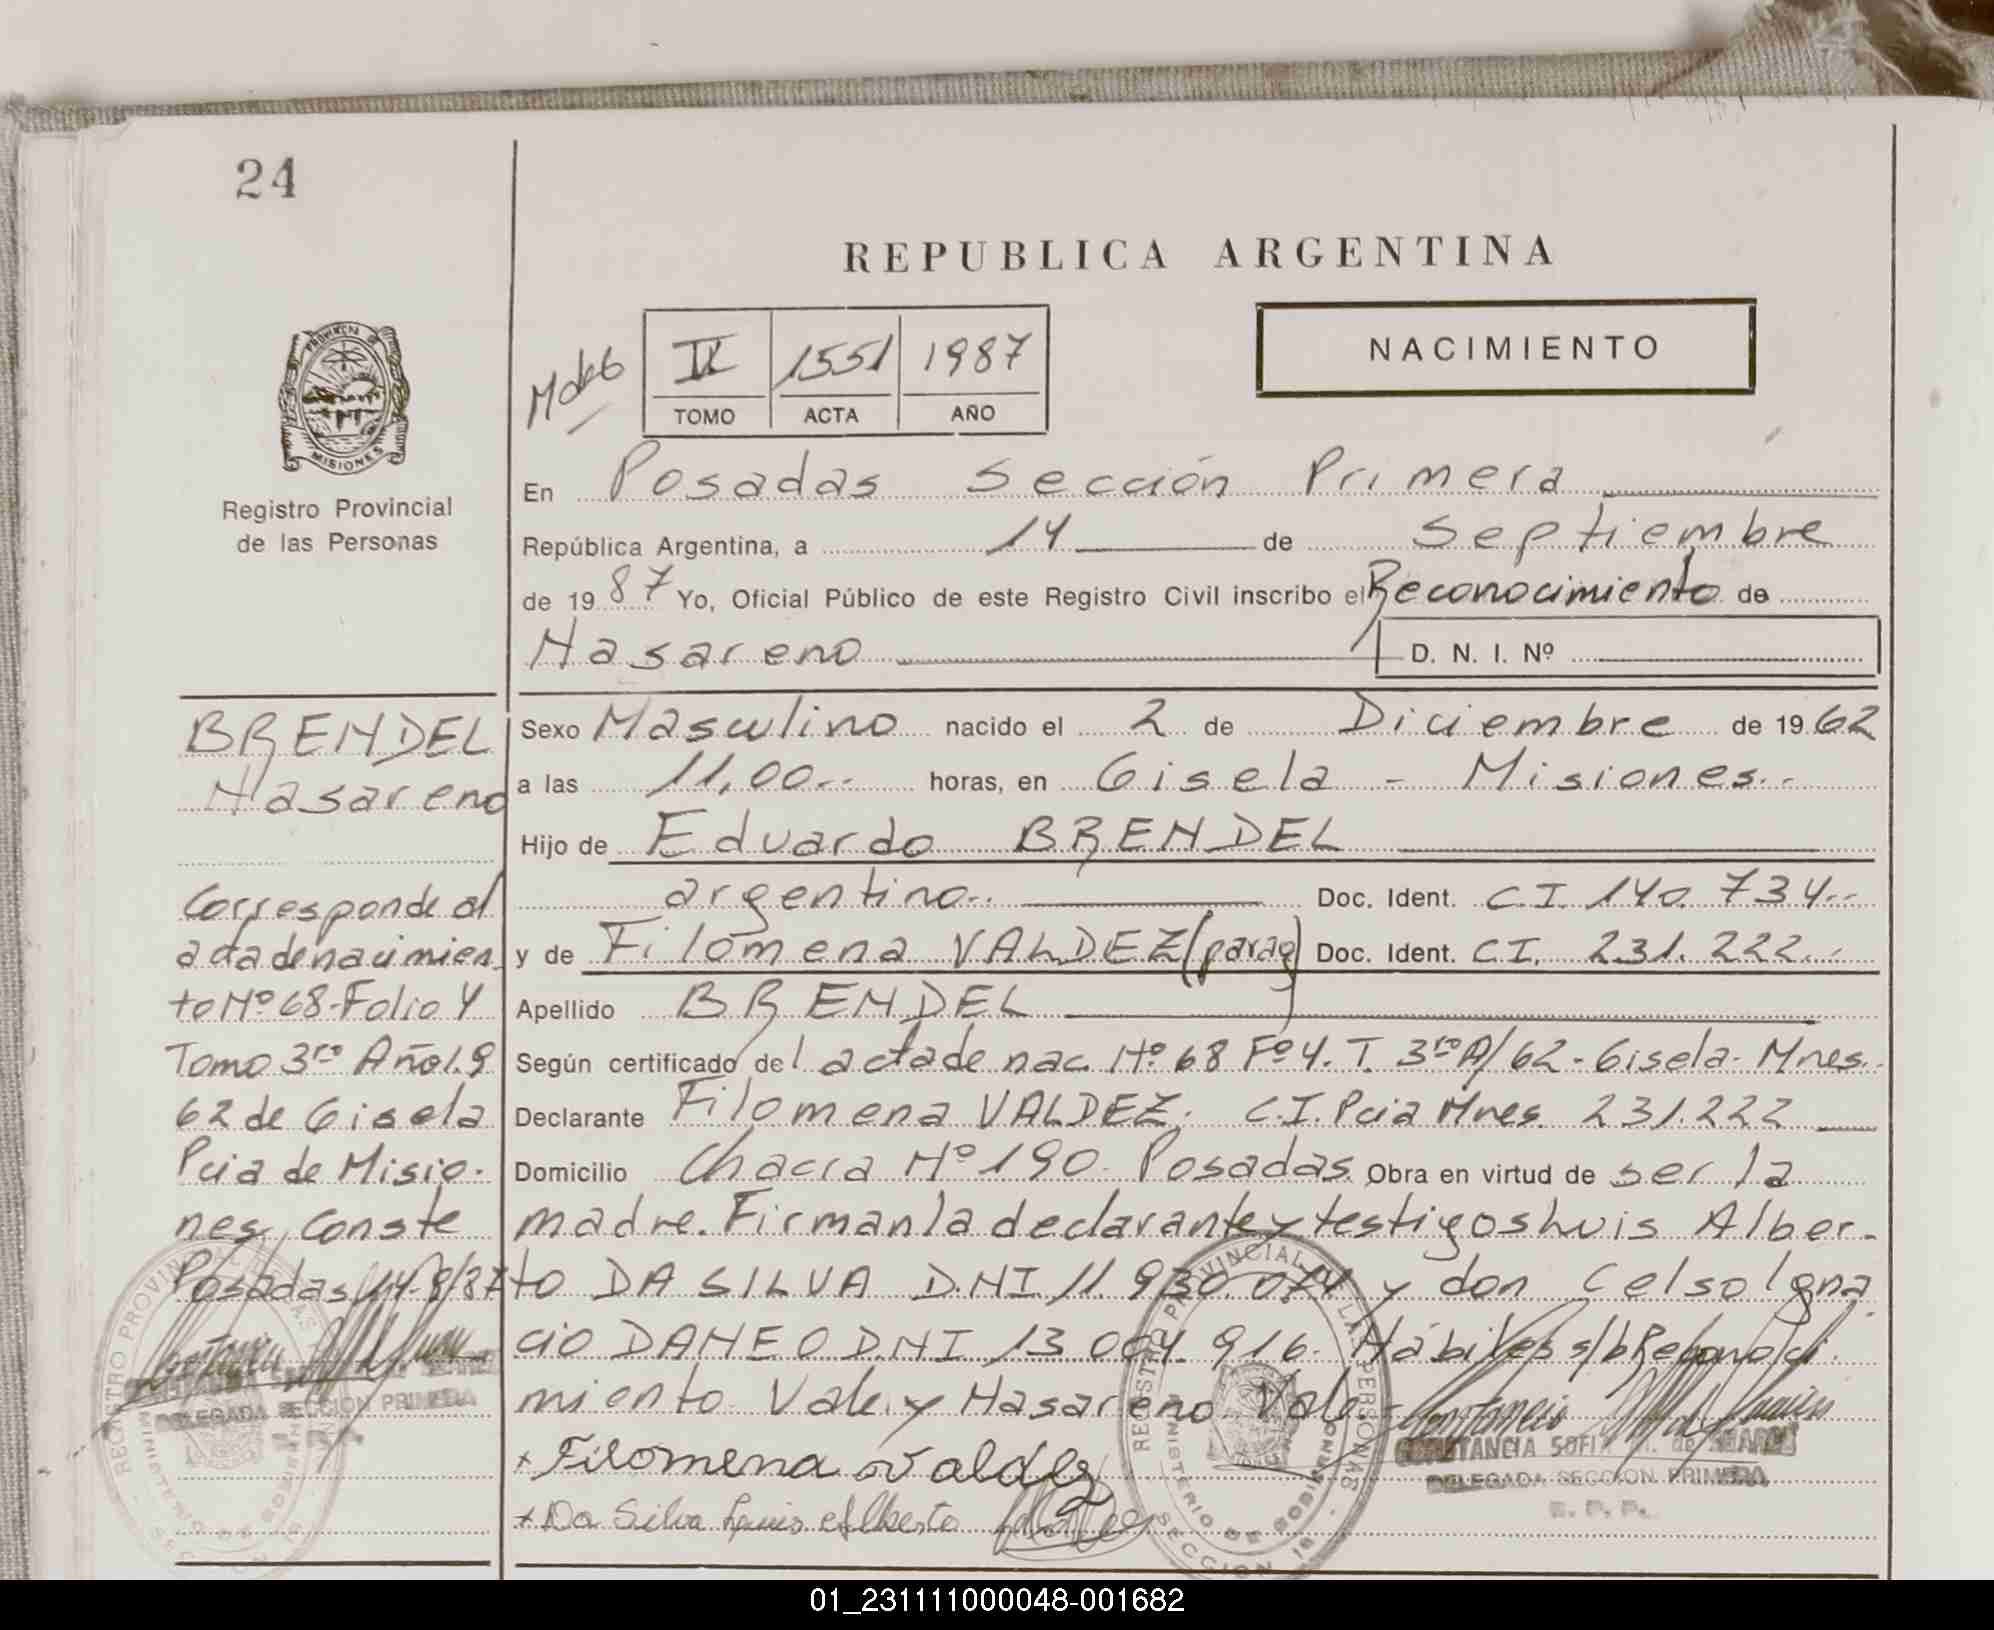 24
REPUBLICA ARGENTINA
NACIMIENTO
II 1551 1987
TOMO ACTA AÑO
PROVINCIA DE
MISIONES
Registro Provincial
de las Personas
En Posadas Sección Primera
República Argentina, a 14 de Septiembre
de 1987 Yo, Oficial Público de este Registro Civil inscribo el Reconocimiento de
Nasareno D. N. I. Nº
BRENDEL
Nasareno
Corresponde al
acta de nacimien
to Nº 68-Folio 4
Tomo 3ro Año 1.9
62 de Gisela
Pcia de Misio.
nes, Conste
Posadas, 14-9/87
Sexo Masculino nacido el 2 de Diciembre de 1962
a las 11,00.- horas, en Gisela - Misiones.-
Hijo de Eduardo BRENDEL
argentino.. Doc. Ident. C.I. 140.734.-
y de Filomena VALDEZ (parag) Doc. Ident. C.I. 231.222.-
Apellido BRENDEL
Según certificado del acta de nac. Nº 68 Fº 4. T. 3ro A/62 - Gisela - Mnes.
Declarante Filomena VALDEZ. C.I. Pcia Mnes. 231.222
Domicilio Chacra Nº 190. Posadas. Obra en virtud de ser la
madre. Firman la declarante y testigos Luis Alber-
to DA SILVA D.NI 11.930.074 y don Celso Igna
cio DANEO D.NI 13.004.916. Hábiles s/b Reconoci
miento Vale. y Nasareno Vale.-
+ Filomena Valdez
+ Da Silva Luis Alberto
CONSTANCIA SOFIA
DELEGADA SECCION PRIMERA
R. P. P.
DELEGADA SECCION PRIMERA
REGISTRO PROVINCIAL DE LAS PERSONAS
MINISTERIO DE GOBIERNO
SECCION 1ª
01_231111000048-001682